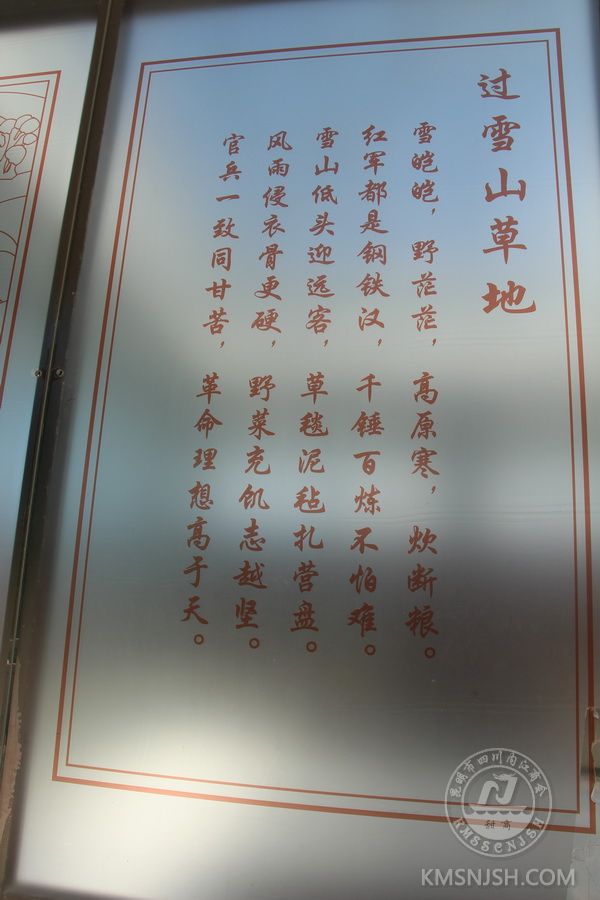 过雪山草地
雪皑皑，野茫茫，高原寒，炊断粮。
红军都是钢铁汉，千锤百炼不怕难。
雪山低头迎远客，草毯泥毡扎营盘。
风雨侵衣骨更硬，野菜充饥志越坚。
官兵一致同甘苦，革命理想高于天。
昆明市四川内江商会
甜高
KMSSCNJSH
KMSNJSH.COM